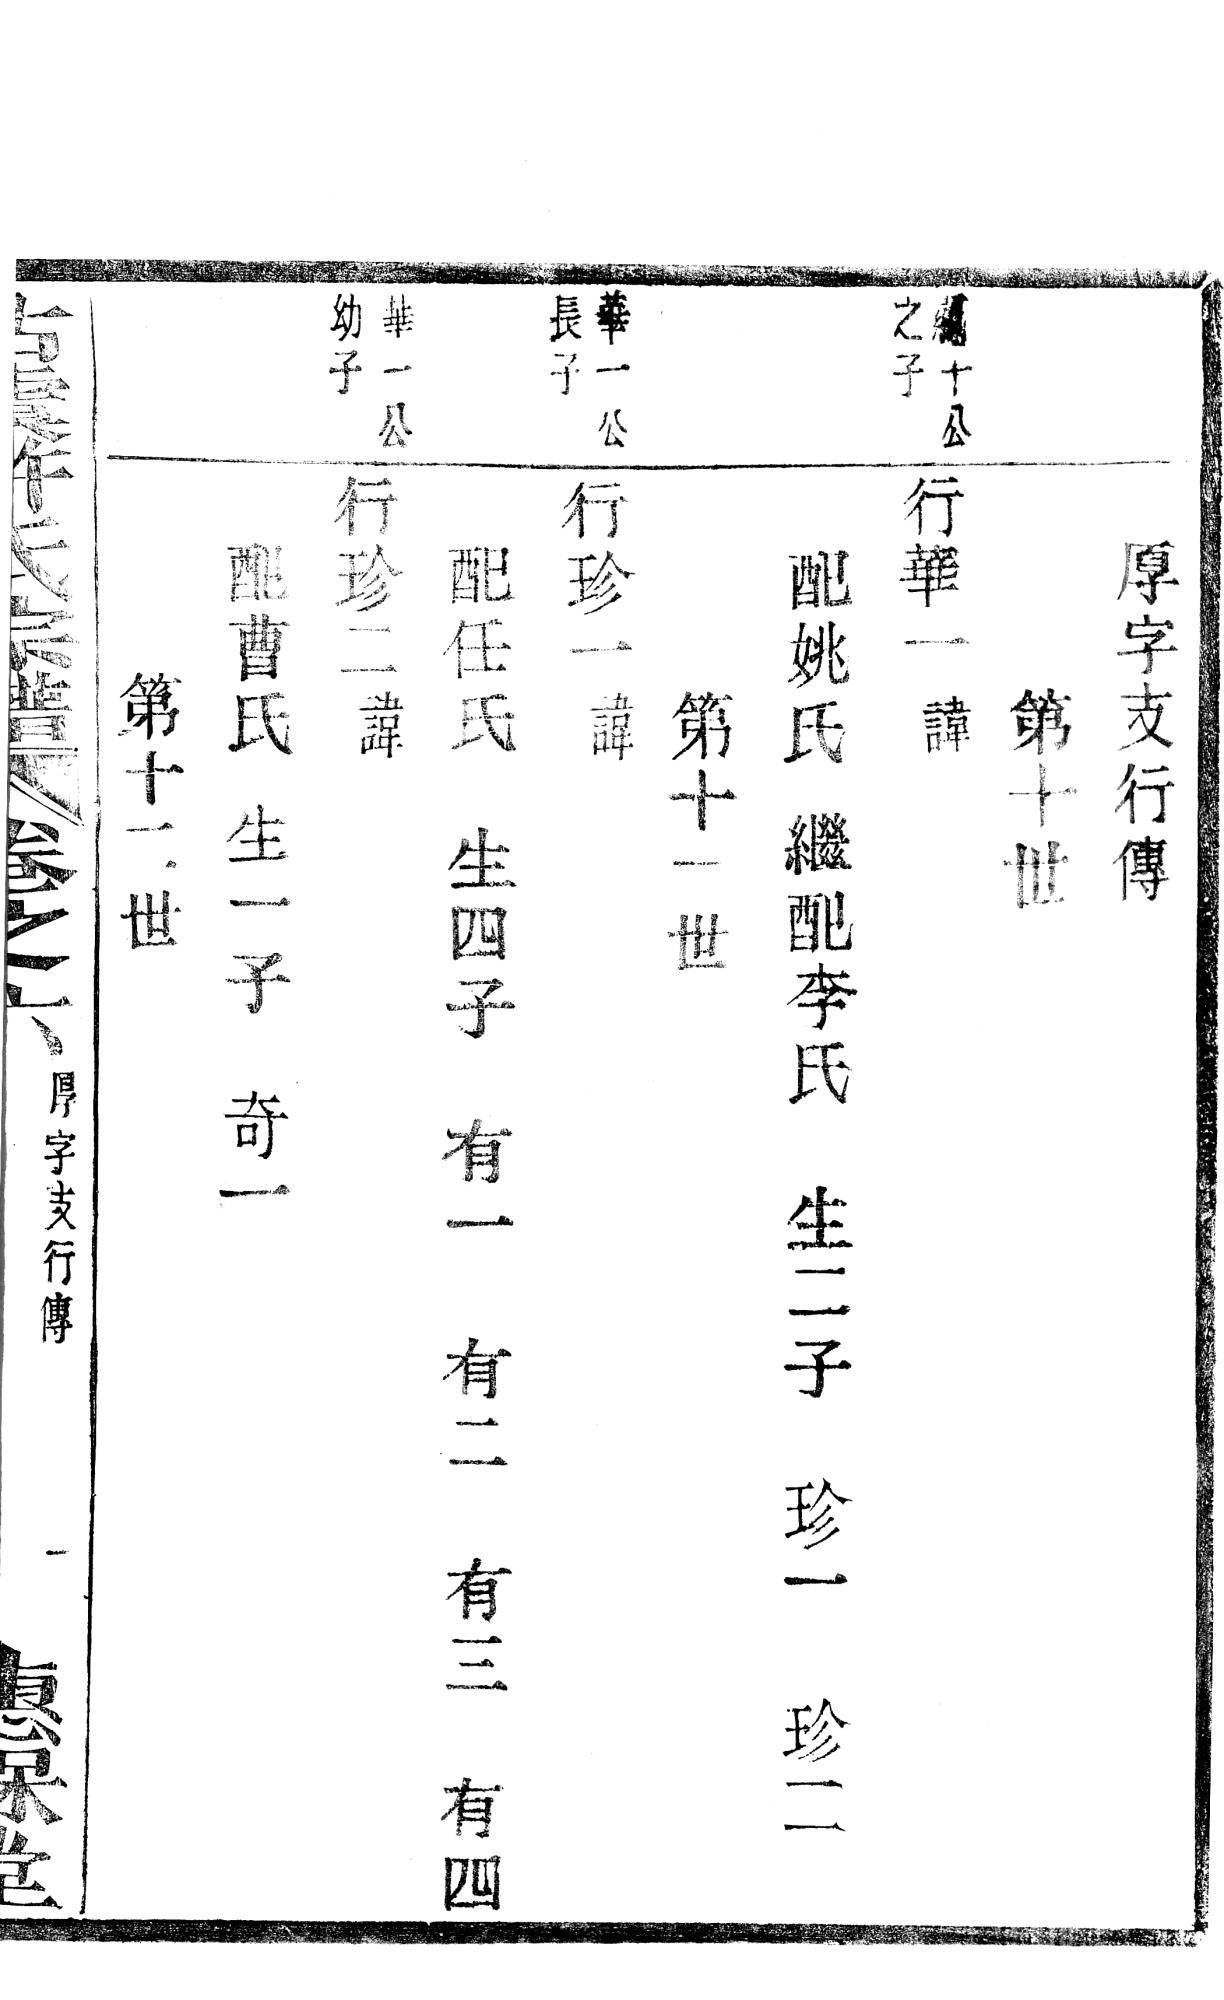 厚字支行傳
第十世
十公
之子
行華一 諱
配姚氏 繼配李氏 生二子 珍一 珍二
第十一世
華一公
長子
行珍一 諱
配任氏 生四子 有一 有二 有三 有四
華一公
幼子
行珍二 諱
配曹氏 生一子 奇一
第十二世
古虞許氏宗譜 卷之六 厚字支行傳 一 堂